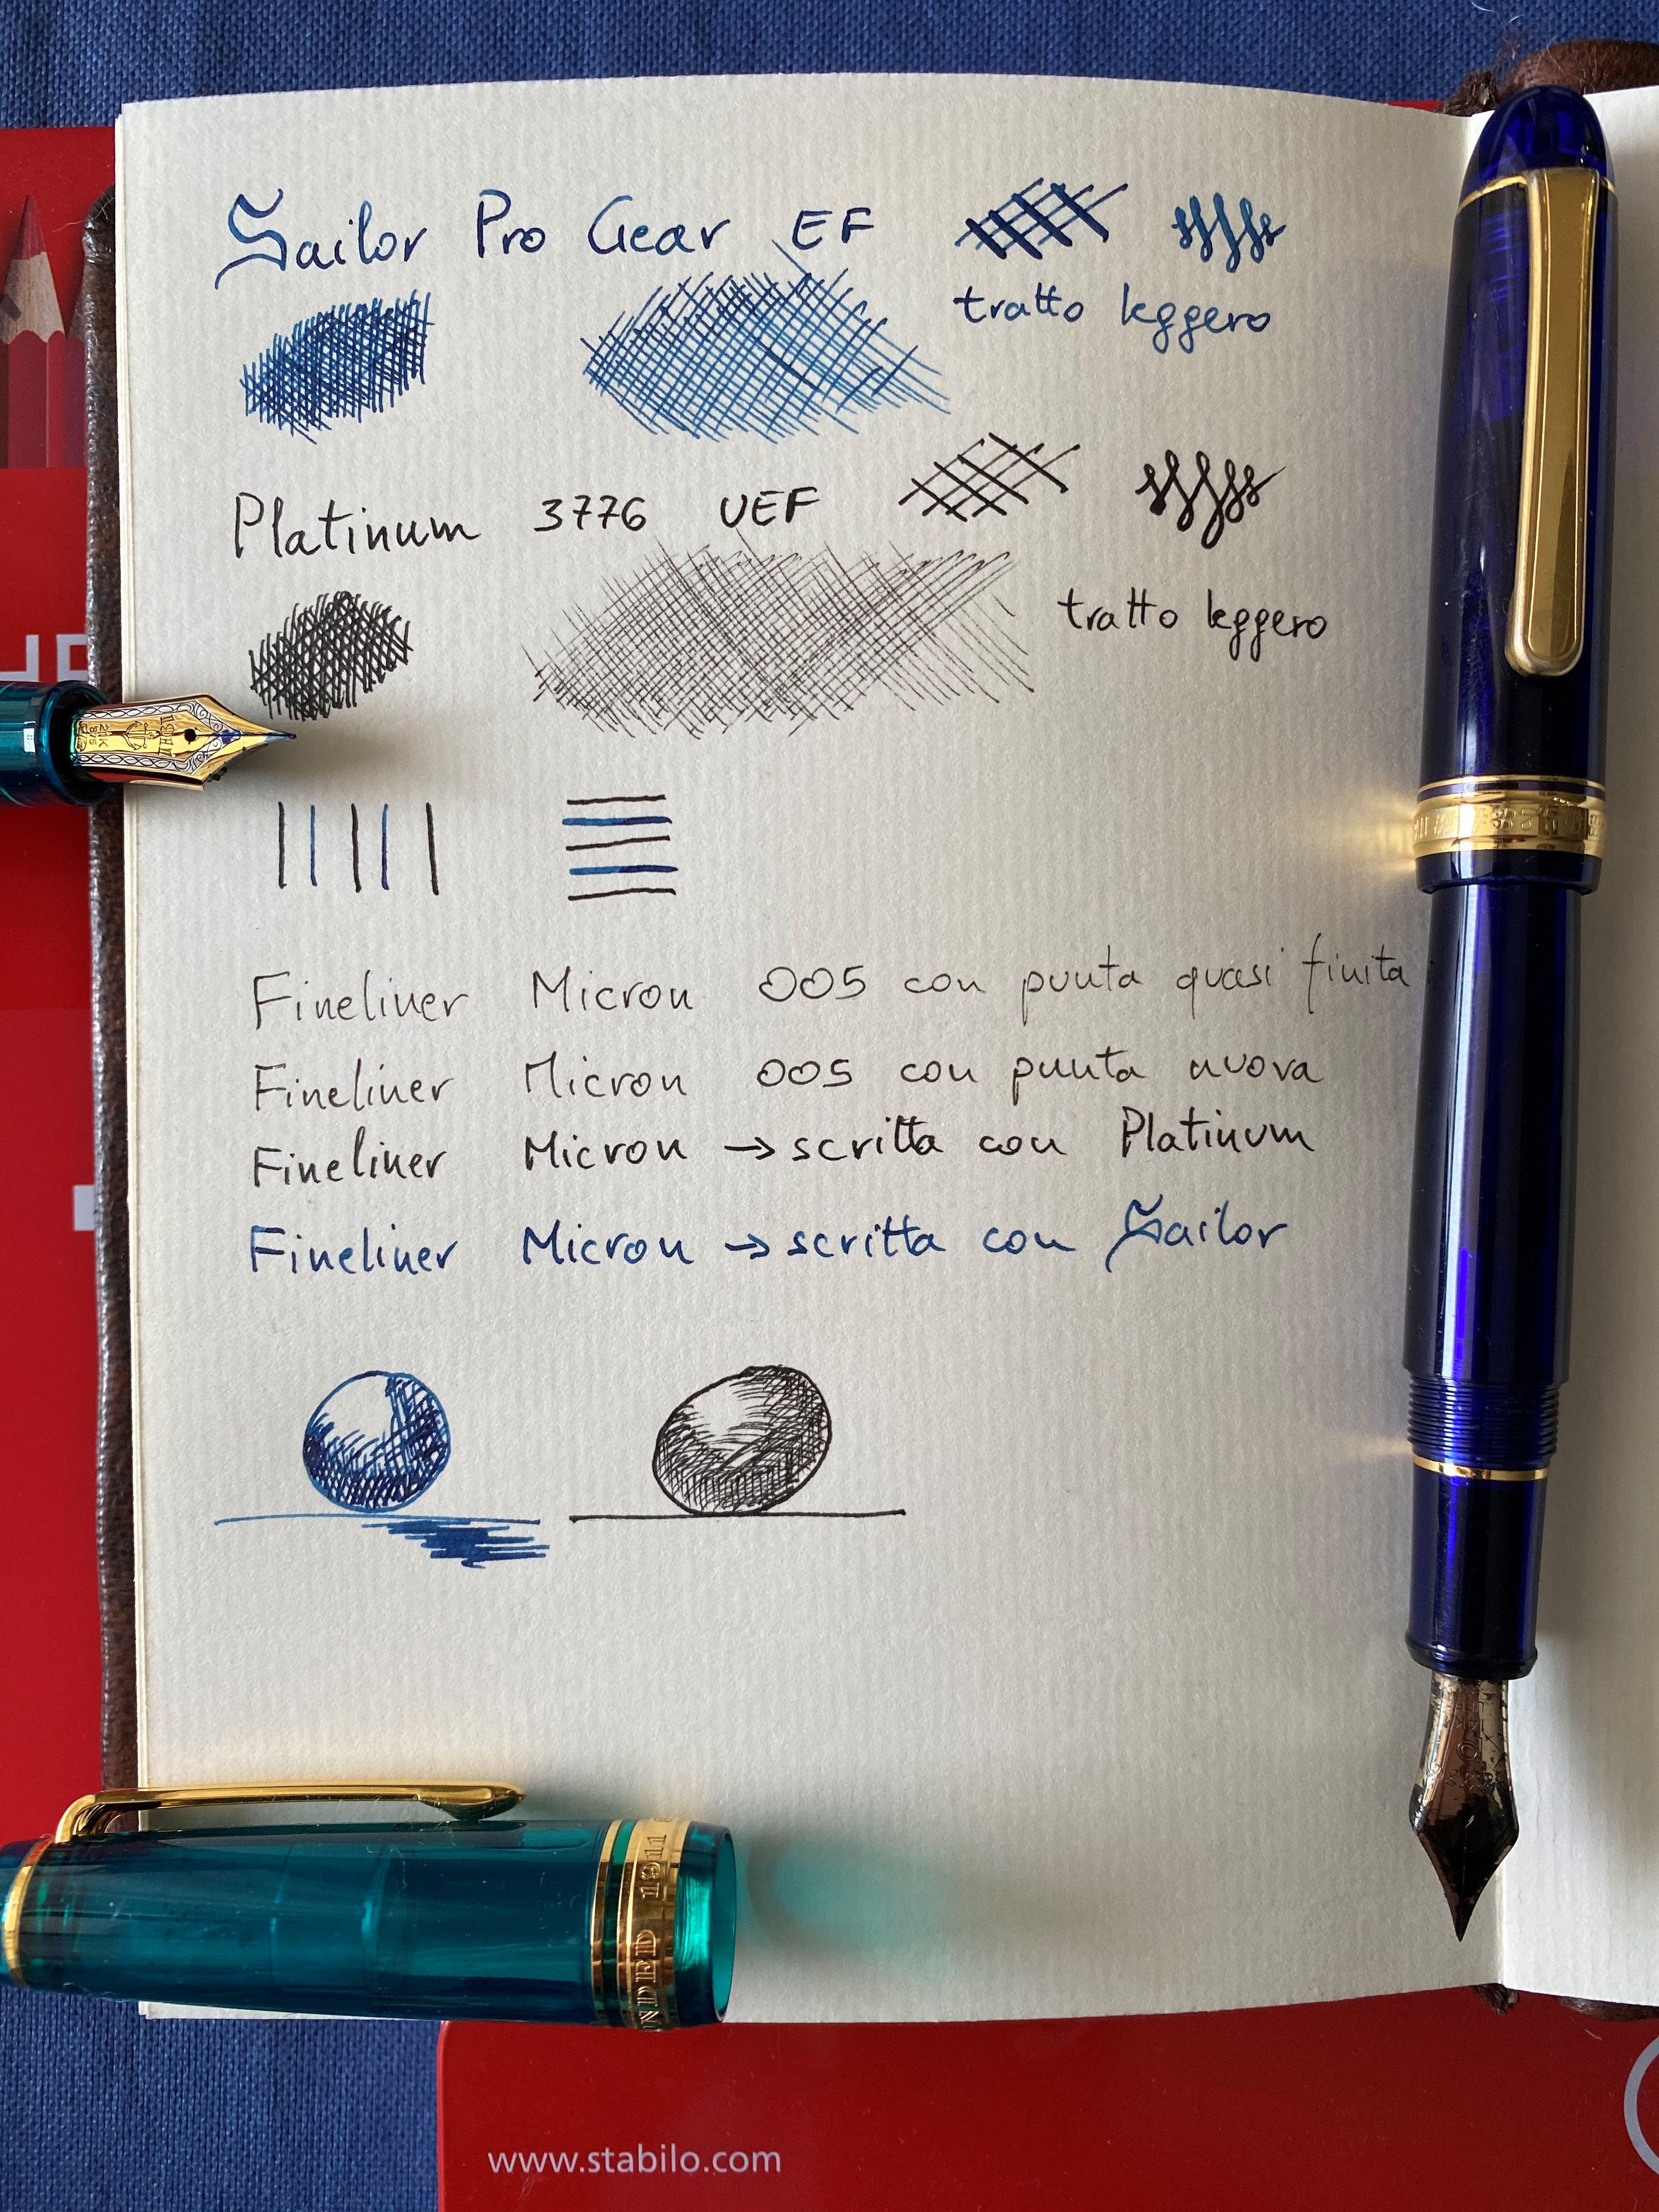 Sailor Pro Gear EF
tratto leggero
Platinum 3776 UEF
tratto leggero
Fineliner Micron 005 con punta quasi finita
Fineliner Micron 005 con punta nuova
Fineliner Micron → scritta con Platinum
Fineliner Micron → scritta con Sailor
NDED 1911
www.stabilo.com